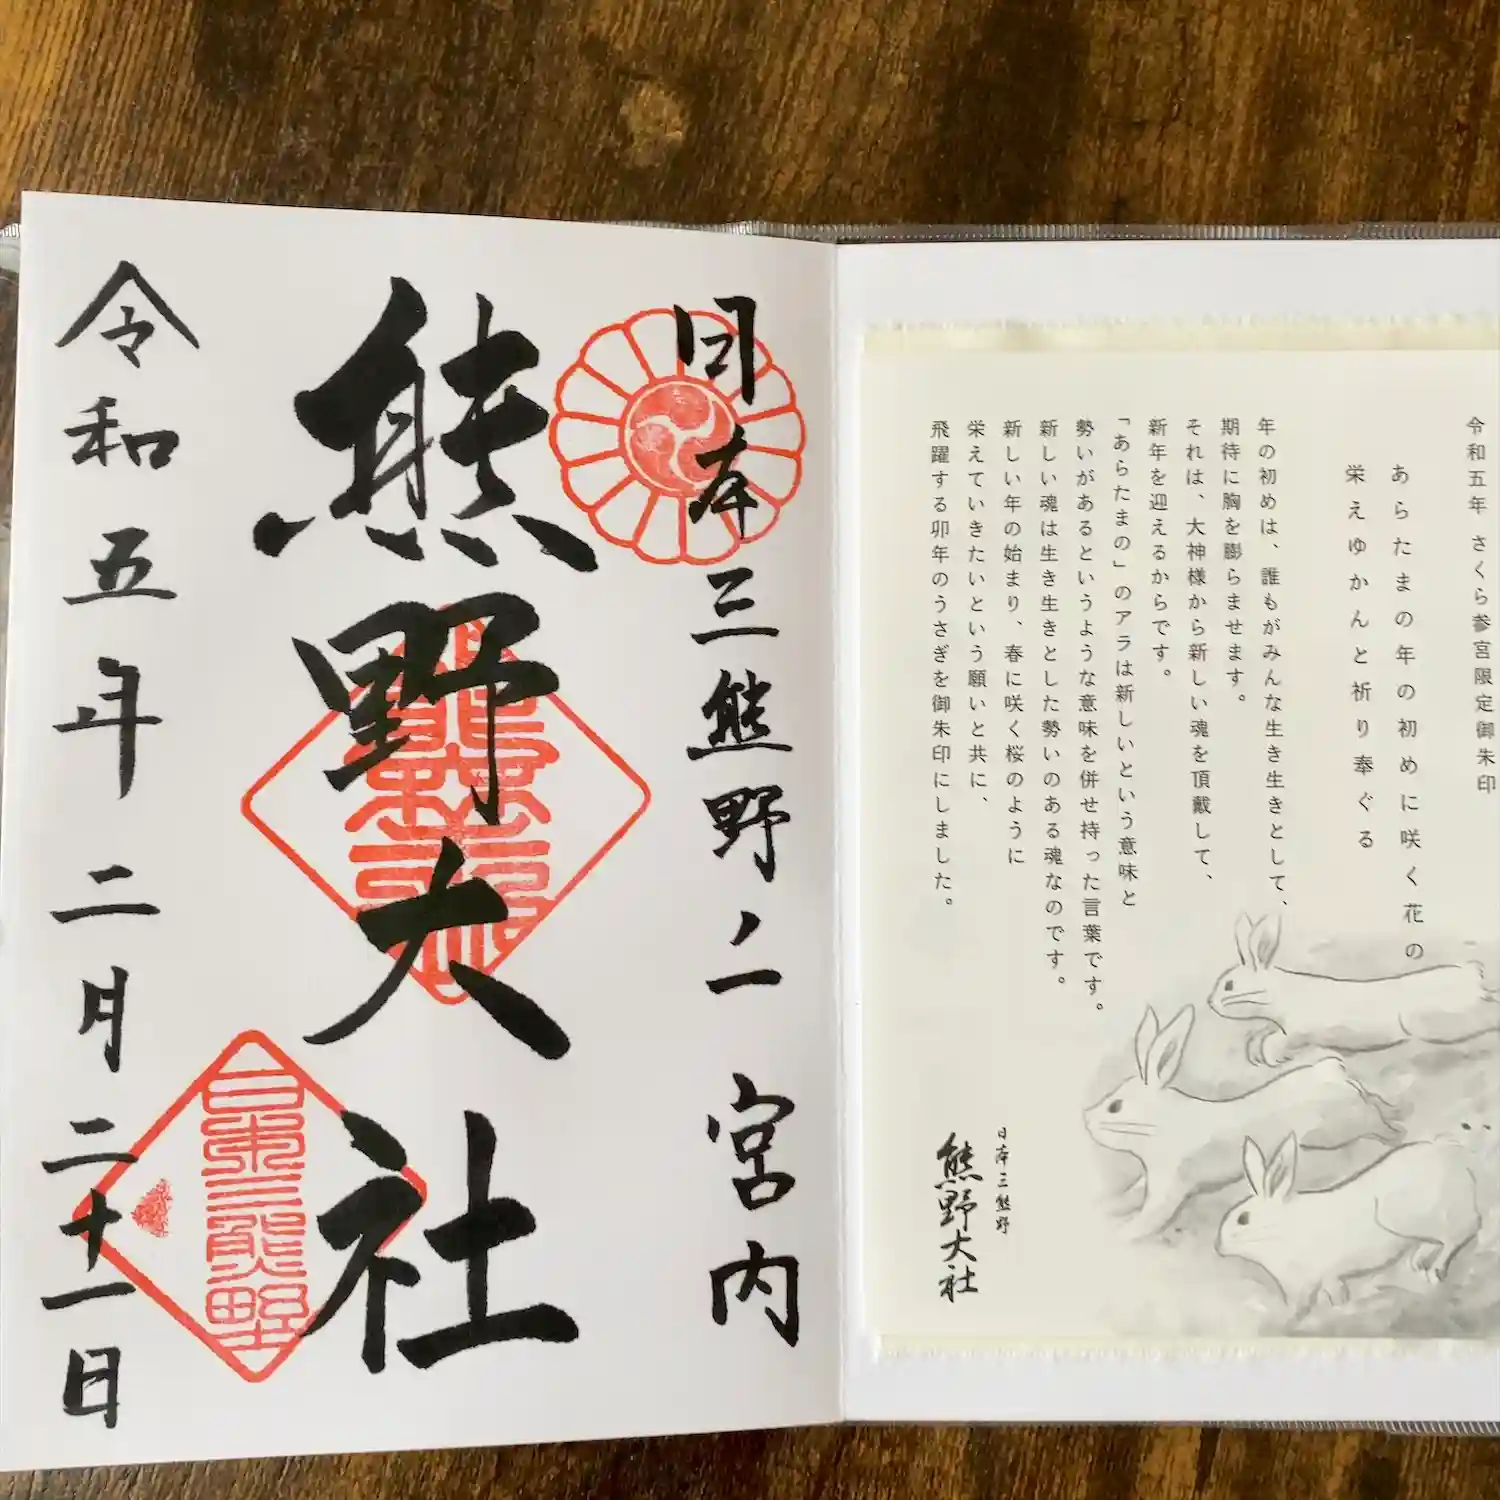 日本三熊野ノ一宮内
熊野大社
令和五年二月二十一日
日本三熊野
令和五年 さくら参宮限定御朱印
あらたまの年の初めに咲く花の
栄えゆかんと祈り奉ぐる
年の初めは、誰もがみんな生き生きとして、
期待に胸を膨らませます。
それは、大神様から新しい魂を頂戴して、
新年を迎えるからです。
「あらたまの」のアラは新しいという意味と
勢いがあるというような意味を併せ持った言葉です。
新しい魂は生き生きとした勢いのある魂なのです。
新しい年の始まり、春に咲く桜のように
栄えていきたいという願いと共に、
飛躍する卯年のうさぎを御朱印にしました。
日本三熊野
熊野大社